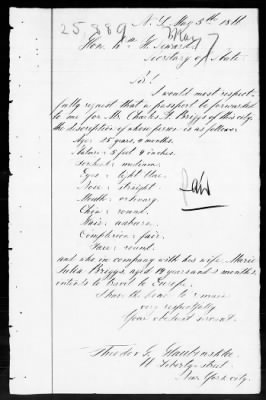 25,889
N.Y. May 5th 18
Hon. Wm H. Seward
May 7
Secretary of State.
Sir!
I would most respect-
fully request that a passport be forwarded
to me for Mr. Charles F. Briggs of this city
the discription of whose person is as follows:
Age: 25 years, 2 months.
Stature: 5 feet 9 inches.
Forehead: medium.
Eyes: light blue.
Nose: straight.
Mouth: ordinary.
Chin: round.
Hair: auburn.
Complexion: fair.
Face: round.
and who in company with his wife Marie
Julia Briggs, aged 19 years and 3 months,
intends to travel to Europe.
I have the honor to remain
very respectfully
Your obedient servant.
Theodor G. Glaubensklee
11 Liberty street.
New York city.